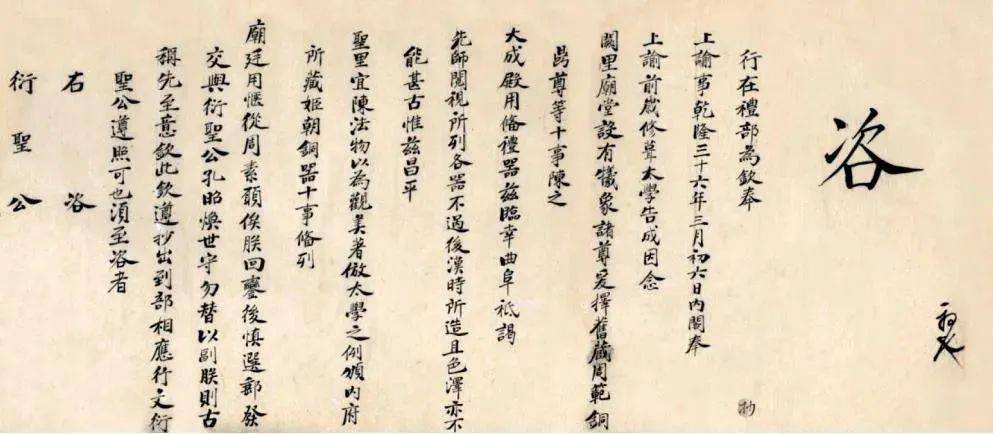 咨
行在禮部為欽奉
上諭事乾隆三十六年三月初六日內閣奉
上諭前歲修葺太學告成因念
闕里廟堂設有犧象諸尊爰擇舊藏周範銅
尊等十事陳之
大成殿用偹禮器茲臨幸曲阜祗謁
先師閱視所列各器不過後漢時所造且色澤亦不
能甚古惟茲昌平
聖里宜陳法物以為觀美著倣太學之例頒內府
所藏姬朝銅器十事偹列
廟廷用愜從周素願俟朕回鑾後慎選郵發
交與衍聖公孔昭煥世守勿替以副朕則古
稱先至意欽此欽遵抄出到部相應行文衍
聖公遵照可也須至咨者
右咨
衍聖公